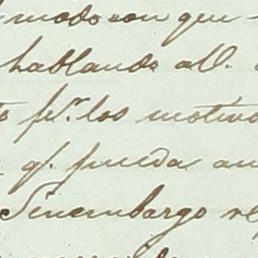 modo con que
hablando al
pr. los motivo
q. pueda an
Sinembargo re